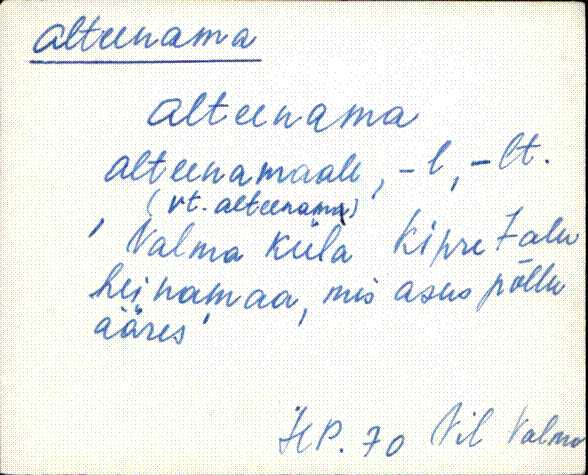 alteenama
alteenama
alteenamaale, -l, -lt.
(vt. alteenama)
, Valma küla Kipre talu
heinamaa, mis asus põllu
ääres '
HP. 70 Vil Valma